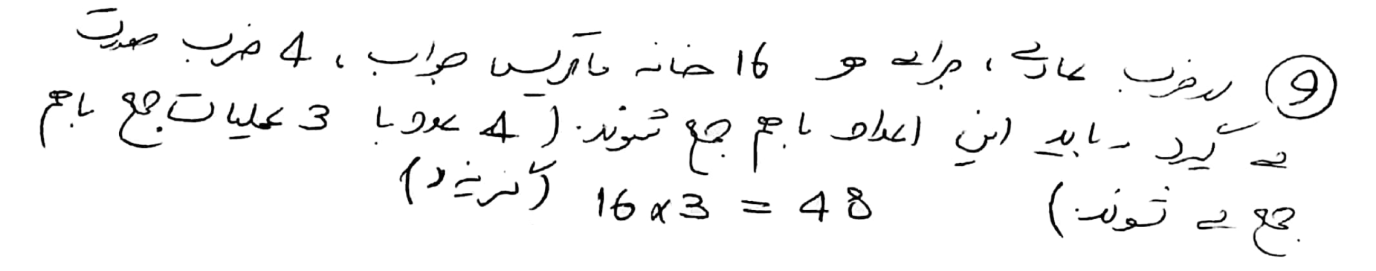 9 در ضرب عادی، برای هر 16 خانه ماتریس جواب، 4 ضرب صورت
می گیرد و باید این اعداد باهم جمع شوند. (4 عدد با 3 عملیات جمع باهم
جمع می شوند) 16 × 3 = 48 (گزینه د)